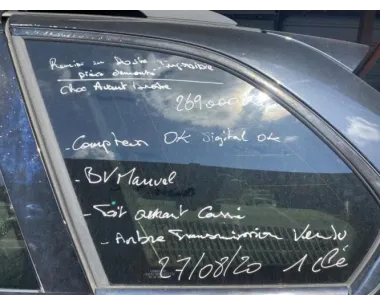 Remise en Route Impossible
pièce demonté
choc Avant
269000
- Compteur OK Digital OK
- BV Manuel
- Toit ouvrant Cassé
- Arbre Transmission Vendu
27/08/20 1 clé